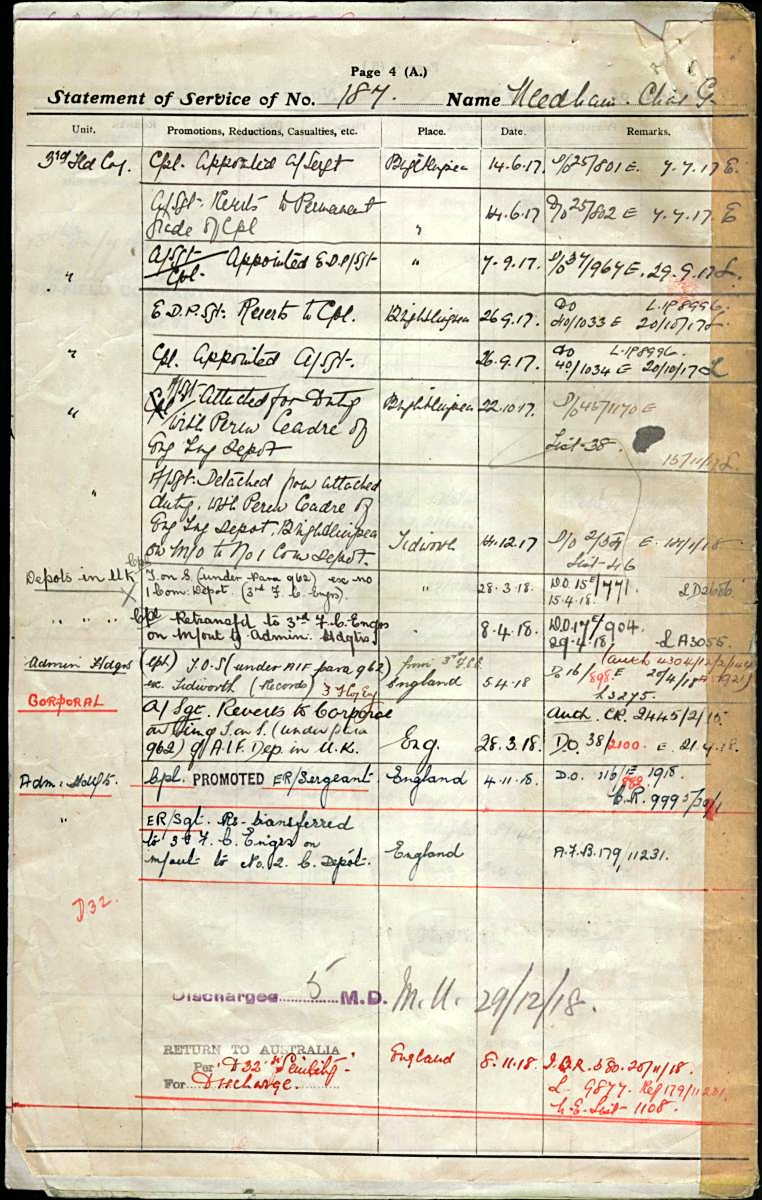 Page 4 (A.)
Statement of Service of No. 187. Name Needham. Chas G.
Unit. Promotions, Reductions, Casualties, etc. Place. Date. Remarks.
3rd Fld Coy. Cpl. Appointed A/Sergt Brightlingsea 14.6.17. D/O 25/801 E. 7.7.17 E.
A/Sgt. Reverts to Permanent
Grade of Cpl " 14.6.17 D/O 25/802 E 7.7.17. E
" A/Sgt
Cpl. Appointed E.D.P/Sgt " 7.9.17. D/O 37/967 E. 29.9.17 L.
E.D.P. Sgt. Reverts to Cpl. Brightlingsea 26.9.17. DO L.1P8996
40/1033 E 20/10/17 L
" Cpl. Appointed A/Sgt. 26.9.17. DO L.1P8996.
40/1034 E 20/10/17 L
" Cpl A/Sgt. Attached for Duty
with Perm Cadre of
Eng Tng Depot Brightlingsea 22.10.17. D/O 45/1170 E
List 38. 15/11/17 L.
" A/Sgt. Detached from attached
duty, with Perm Cadre of
Eng Tng Depot, Brightlingsea
on M/O to No 1 Com Depot. Tidworth 14.12.17 D/O E
List 46
Depots in UK Cpl T.on S. (under para 962) exc no
1 Com. Depot. (3rd F. C. Engrs). " 28.3.18. D.O. 15E/771.
15.4.18. LD2686
" " " Cpl Retransfd to 3rd F. C. Engrs
on M/out to Admin. Hdqtrs. " 8.4.18. D.O 17E/904.
29.4.18 LA3055.
Admin Hdqrs Cpl) T.O.S (under AIF para 962) from 3rd F.C.E
exc. Tidworth (Records) 3 F Coy Eng England 5.4.18 DO 16/898. E 20/4/18
L3275.
CORPORAL A/Sgt. Reverts to Corporal
on being T.on S. (under para
962) of A.I.F. Dep. in U.K. Eng. 28.3.18. Auth. CR. 2445/2/15.
D.O. 38/2100. E. 21.4.18.
Adm. Hdqts. Cpl. PROMOTED ER/Sergeant England 4.11.18 D.O. 116/E 1918.
C.R. 999
" ER/Sgt. Re-transferred
to 3rd F. C. Engrs on
M/out to No. 2. C. Depôt. England A.F.B.179/11231.
D32.
Discharged 5 M.D. M.U. 29/12/18.
RETURN TO AUSTRALIA England 8.11.18.
Per "D32"
For Discharge. L 9877. Reg 179/11231.
List 1108.